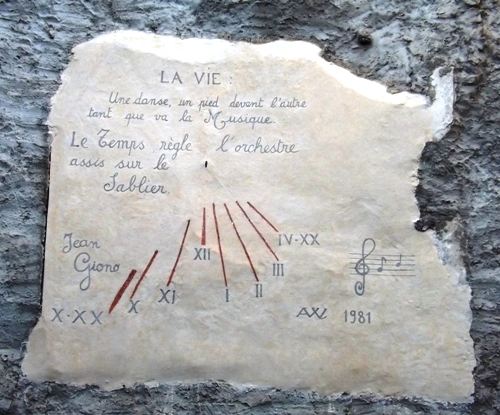 LA VIE :
Une danse, un pied devant l'autre
tant que va la Musique.
Le Temps règle l'orchestre
assis sur le
Sablier.
Jean
Giono
X-XX
X
XI
XII
I
II
III
IV-XX
AW 1981